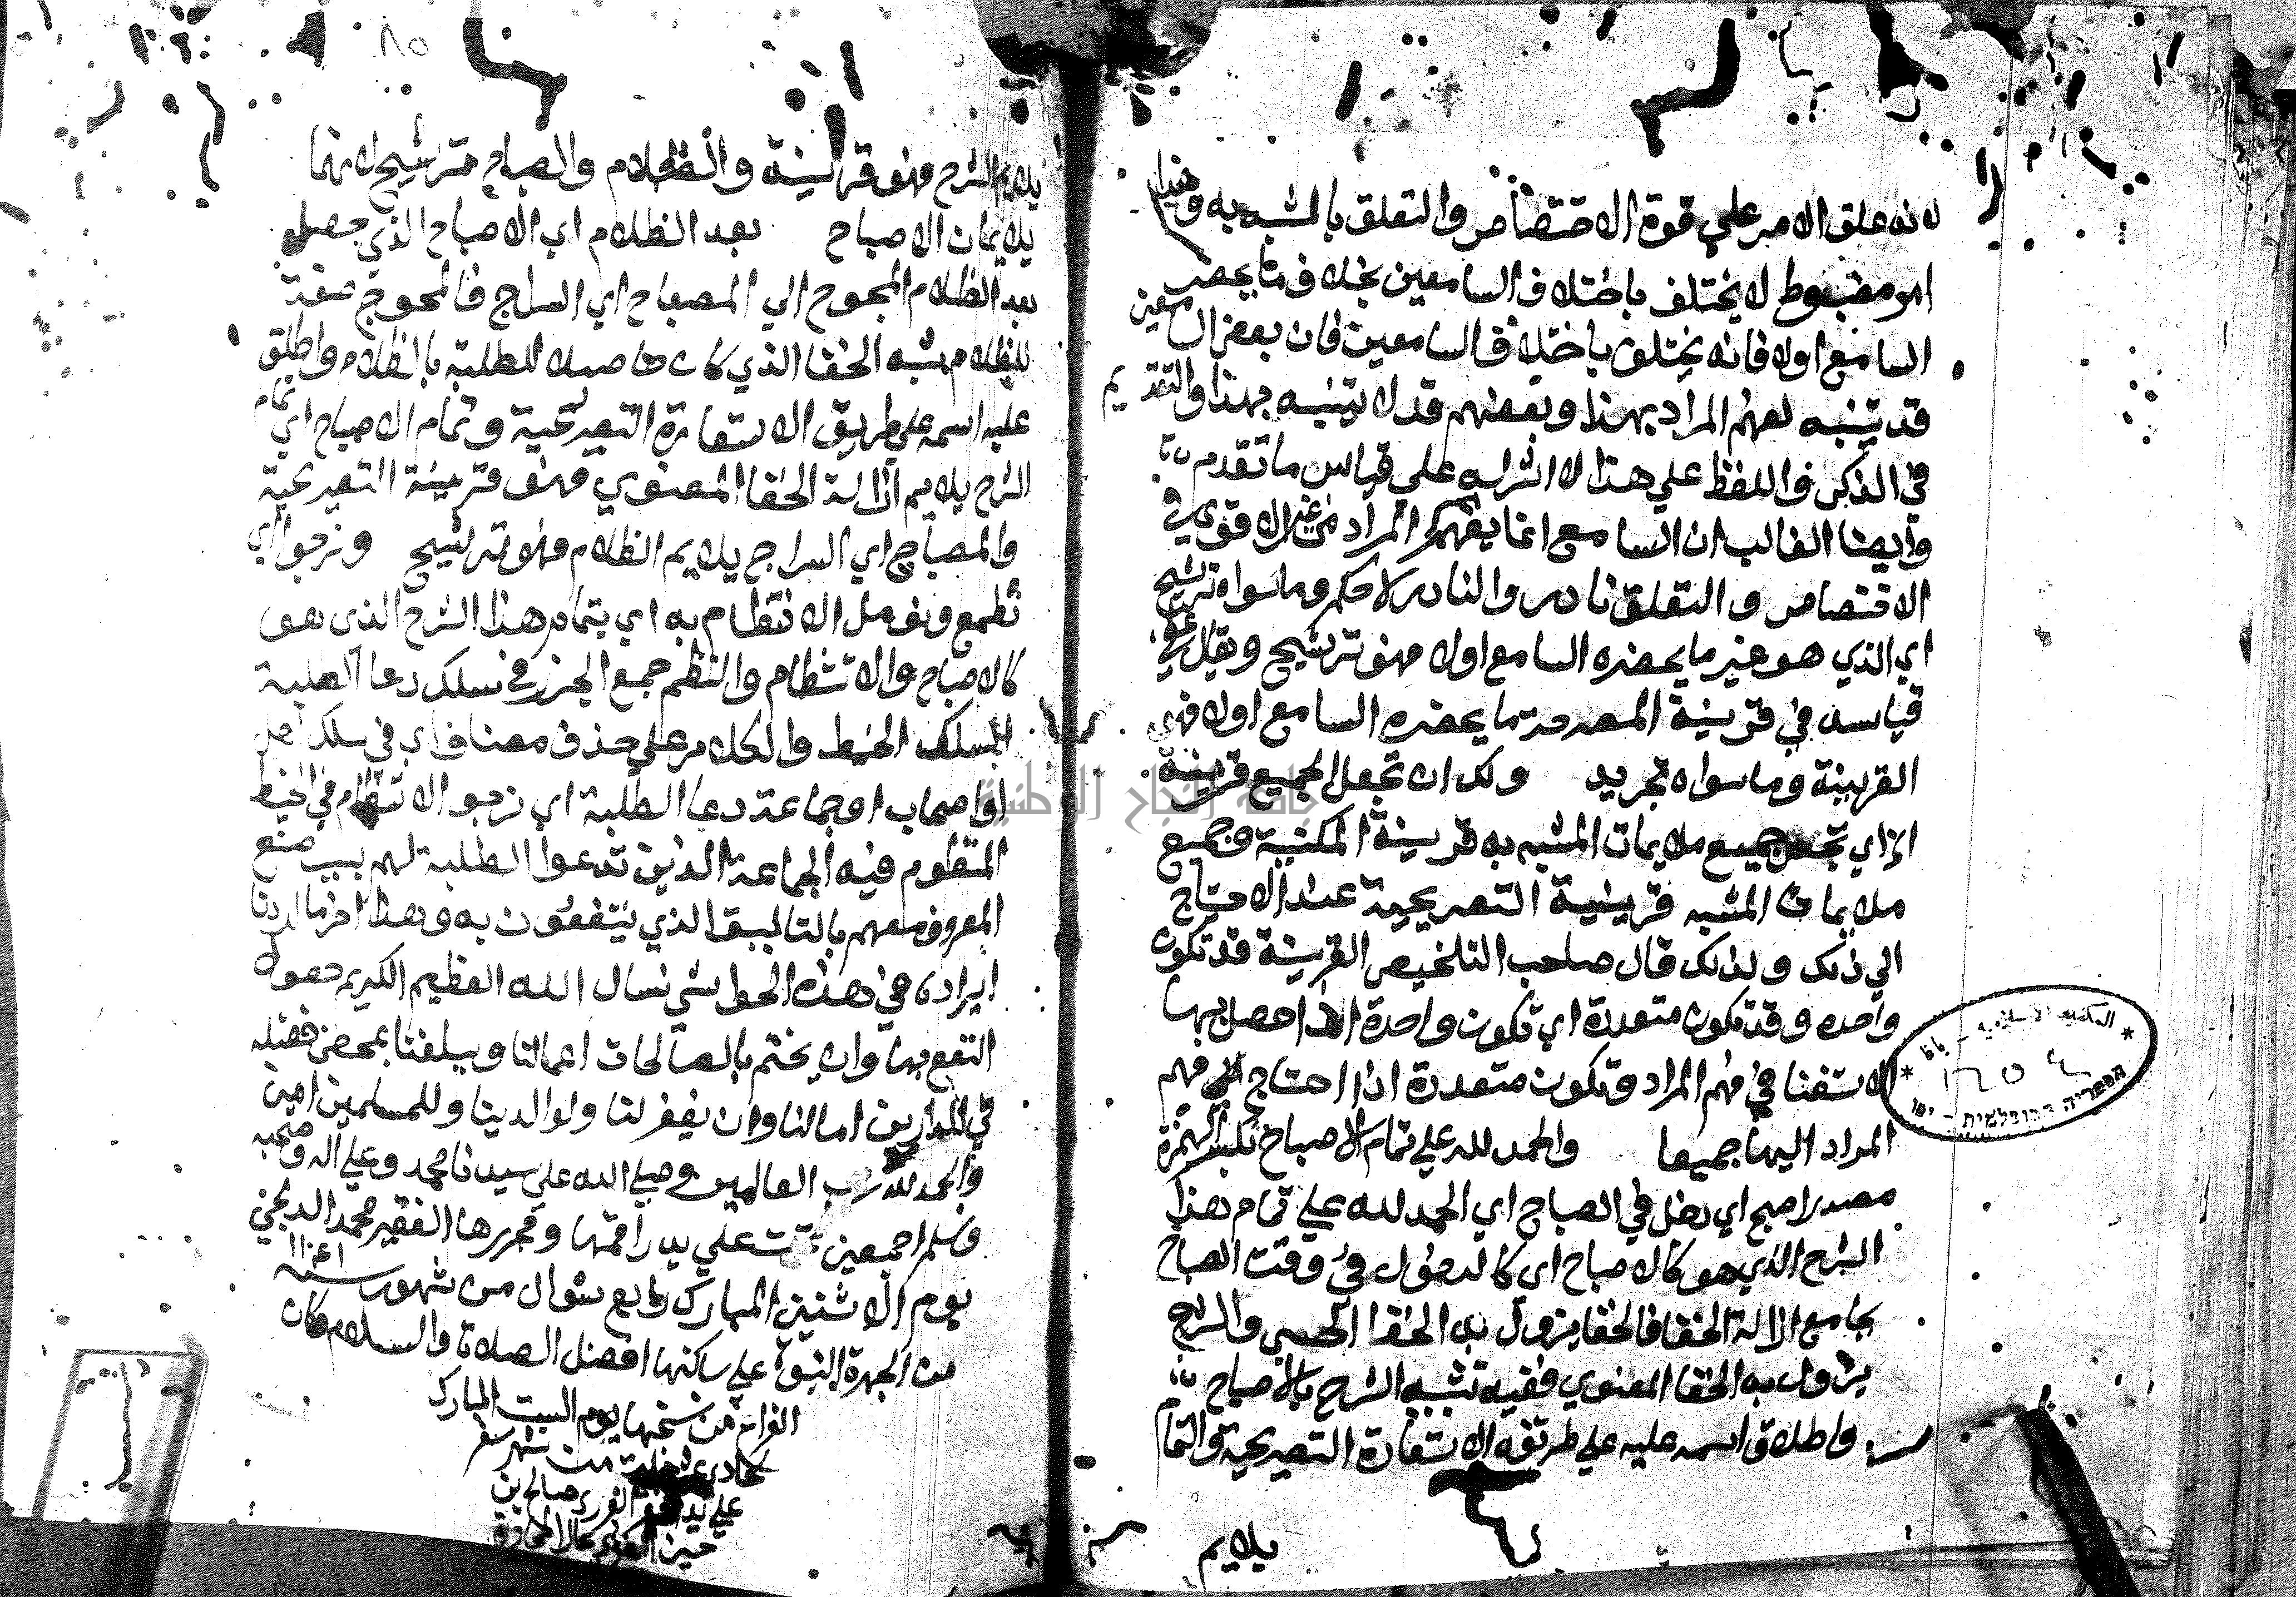 لانه علق الامر علي قوة الاختصاص والتعلق بالمشبه به وهذا
امر مضبوط لا يختلف باختلاف السامعين بخلاف ما يحضر
السامع اولا فانه يختلف باختلاف السامعين فان بعض السامعين
قد يتنبه لفهم المراد بهذا وبعضهم قد لا يتنبه بهذا والتقديم
في الذكر واللفظ علي هذا لا اثر له علي قياس ما تقدم
وايضا الغالب ان السامع انما يفهم المراد من الاقوي في
الاختصاص والتعلق نادر والنادر لا حكم وما سواه ترشيح
اي الذي هو غير ما يحضره السامع اولا فهو ترشيح ويقال علي
قياسه في قرينة المصرحة ما يحضره السامع اولا فهي
القرينة وما سواه تجريد ولك ان تجعل الجميع قرينة
الخ اي تجعل جميع ملايمات المشبه به قرينة المكنية وجميع
ملايمات المشبه قرينة التصريحية عند الاحتياج
الي ذلك ولذلك قال صاحب التلخيص القرينة قد تكون
واحده وقد تكون متعددة اي تكون واحدة اذا حصل بها
الاستغنا في فهم المراد وتكون متعددة اذا احتاج فهم
المراد اليها جميعا والحمد لله علي تمام الاصباح بكسر الهمزة
مصدر اصبح اي دخل في الصباح اي الحمد لله علي تمام هذا
الشرح الذي هو كالاصباح اي كالدخول في وقت الصباح
بجامع ازالة الخفا فالخفا يزول به الخفا الحسي والشرح
يزول به الخفا المعنوي ففيه تشبيه الشرح بالاصباح
واطلاق اسمه عليه علي طريقة الاستعارة التصريحية والتمام
يلايم
المكتبة الاسلامية - يافا
הספריה המוסלמית - יפו
٨٥
يلايم الشرح فهو قرينة والظلام والصباح ترشيح لانهما
يلايمان الاصباح بعد الظلام اي الاصباح الذي حصل
بعد الظلام المحوج الي المصباح اي السراج فالمحوج صفة
للظلام شبه الخفا الذي كان حاصلا للطلبة بالظلام واطلق
عليه اسمه علي طريق الاستعارة التصريحية وتمام الاصباح اي تمام
الشرح يلايم ازالة الخفا المعنوي فهو قرينة التصريحية
والمصباح اي السراج يلايم الظلام فهو ترشيح ونرجوا اي
نطمع ونؤمل الانتظام به اي بتمام هذا الشرح الذي هو
كالاصباح والانتظام والنظم جمع الخرز في سلك دعا الطلبة
السلك الخيط والكلام علي حذف مضاف اي في سلك اهل
او اصحاب او جماعة دعا الطلبة اي نرجو الانتظام في الخيط
المنظوم فيه الجماعة الذين تدعوا الطلبة لهم بسبب صنع
المعروف معهم بالتاليف الذي ينتفعون به وهذا اخر ما اردنا
ايراده في هذه الحواشي نسال الله العظيم الكريم حصول
النفع بها وان يختم بالصالحات اعمالنا ويبلغنا بمحض فضله
في الدارين امالنا وان يغفر لنا ولوالدينا وللمسلمين امين
والحمد لله رب العالمين وصلي الله علي سيدنا محمد وعلي اله وصحبه
وسلم اجمعين تمت علي يد راقمها ومحررها الفقير محمد الدلجي
يوم الاثنين المبارك رابع شوال من شهور سنة
من الهجرة النبوية علي ساكنها افضل الصلاة والسلام وكان
الفراغ من نسخها يوم السبت المبارك
خلت من شهر صفر
علي يد صالح بن
حسين